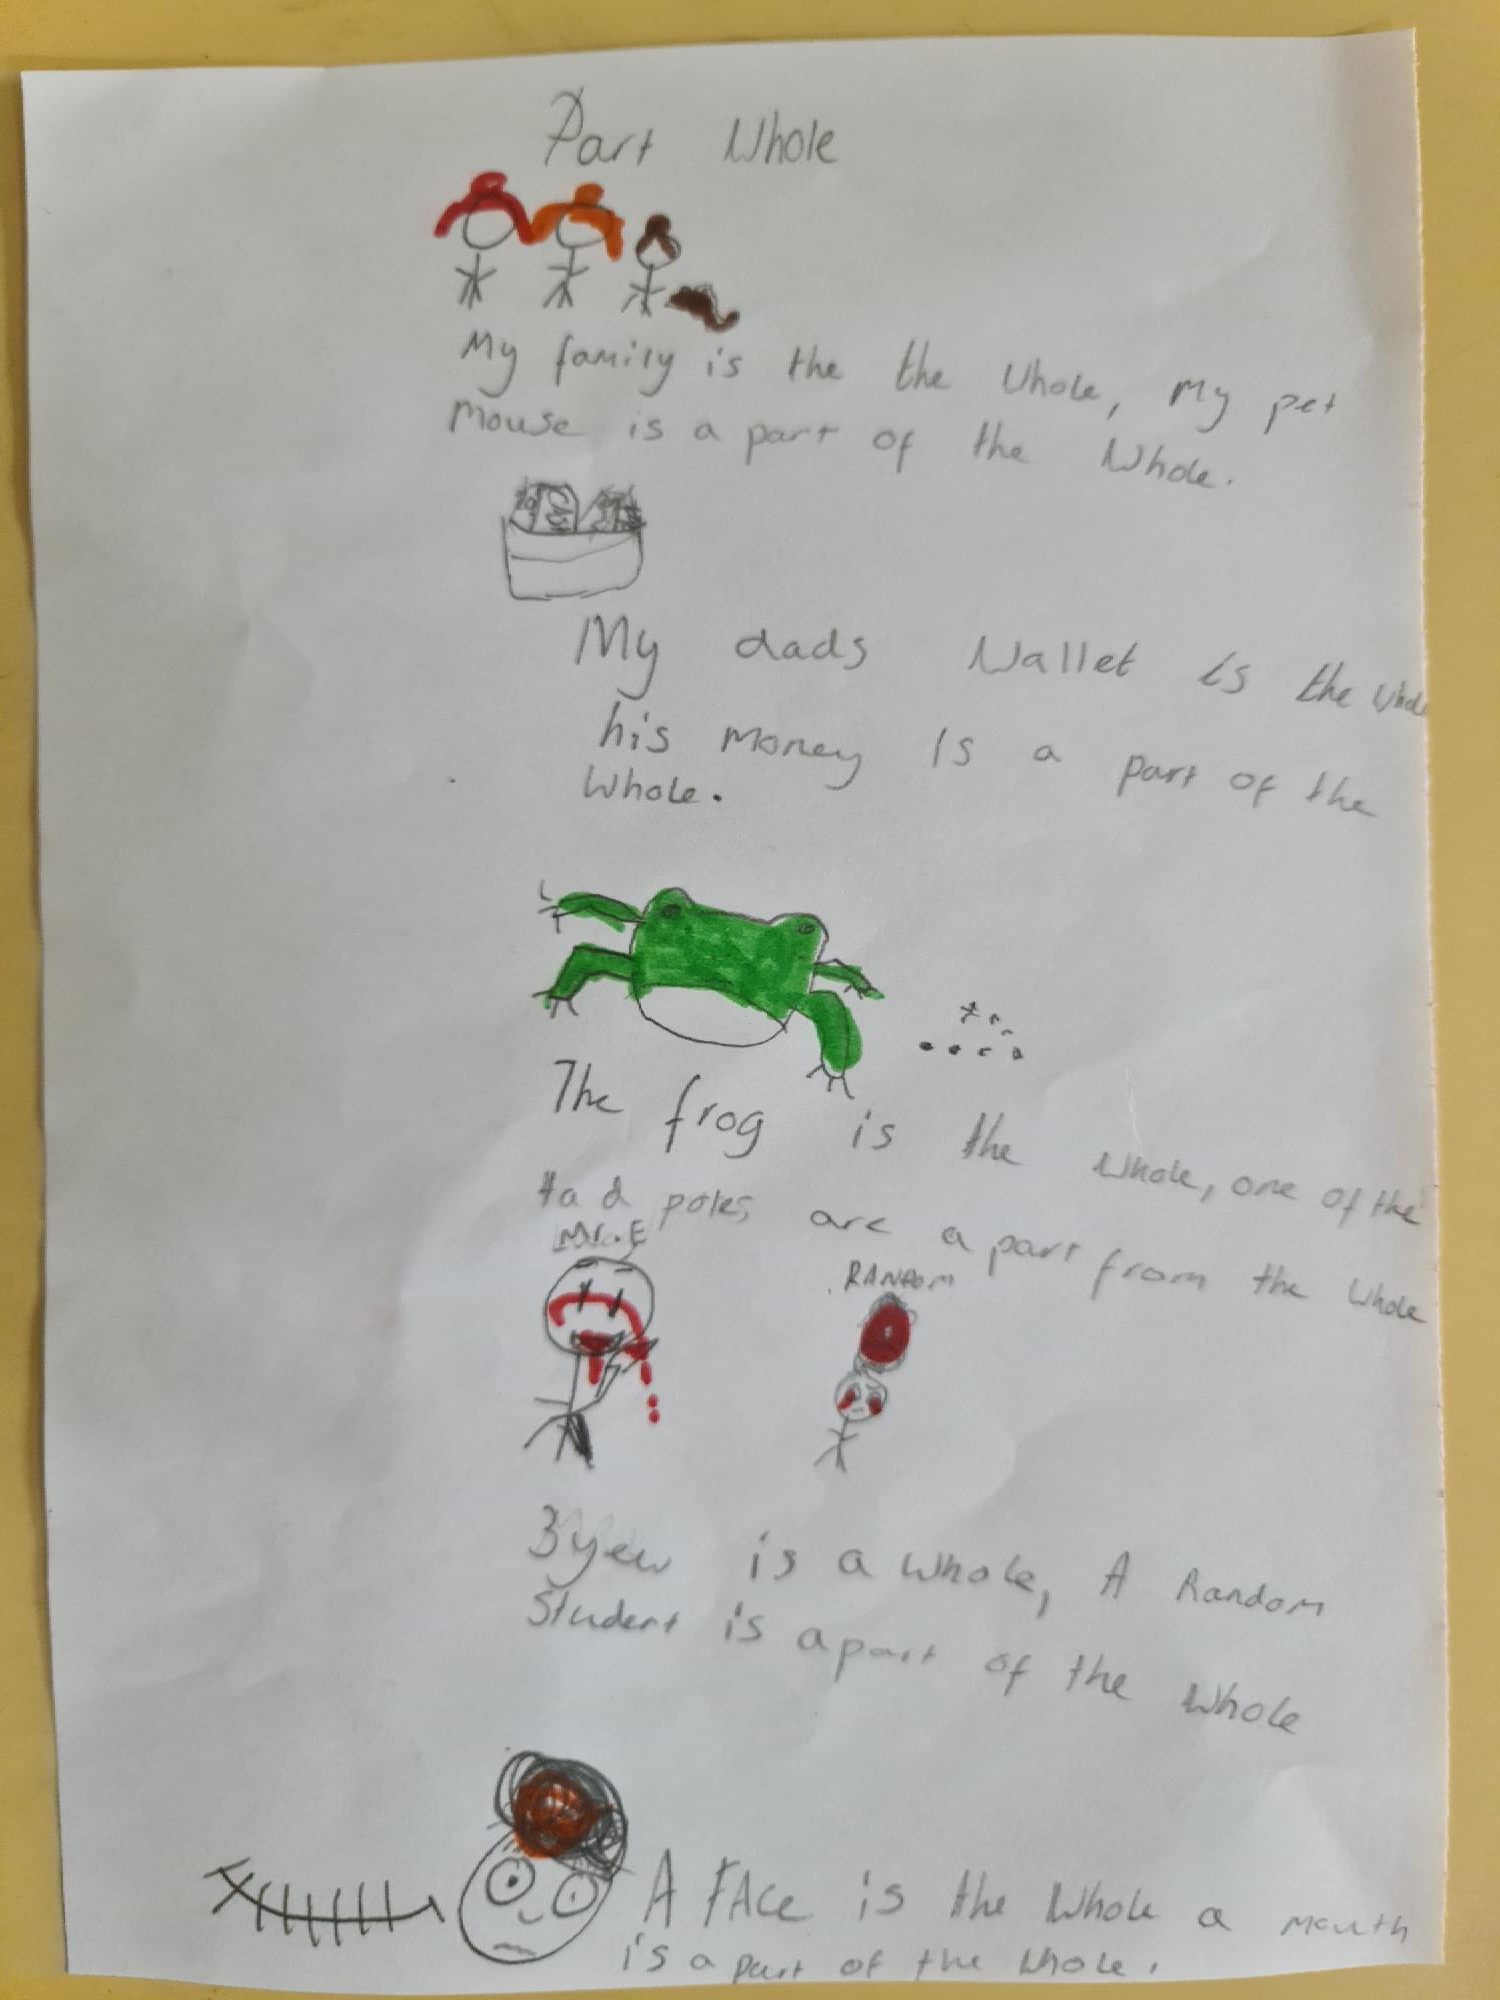 Part Whole
My family is the the whole, My pet
Mouse is a part of the Whole.
My dads Wallet is the whole
his money is a part of the
Whole.
The frog is the whole, one of the
tad poles are a part from the whole
Mr. E
RANDOM
3yew is a whole, A Random
Student is a part of the whole
A FAce is the whole a mouth
is a part of the whole.